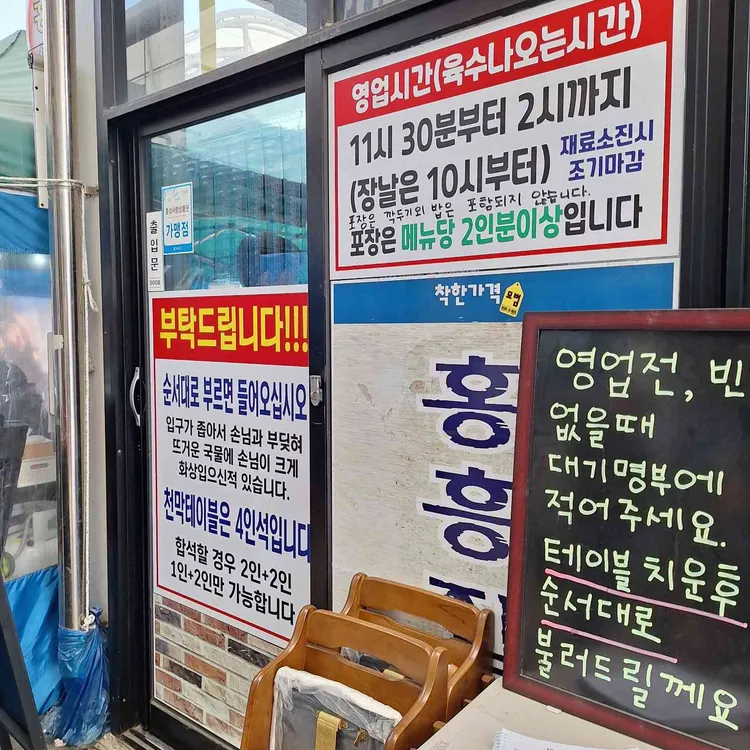 영업시간(육수나오는시간)
11시 30분부터 2시까지
(장날은 10시부터)
재료소진시
조기마감
포장은 깍두기외 밥은 포함되지 않습니다.
포장은 메뉴당 2인분이상입니다
가맹점
출입문
부탁드립니다!!!
순서대로 부르면 들어오십시오
입구가 좁아서 손님과 부딪혀
뜨거운 국물에 손님이 크게
화상입으신적 있습니다.
천막테이블은 4인석입니다
합석할 경우 2인+2인
1인+2인만 가능합니다
착한가격
모범
홍
흥
영업전, 빈
없을때
대기명부에
적어주세요.
테이블 치운후
순서대로
불러드릴께요